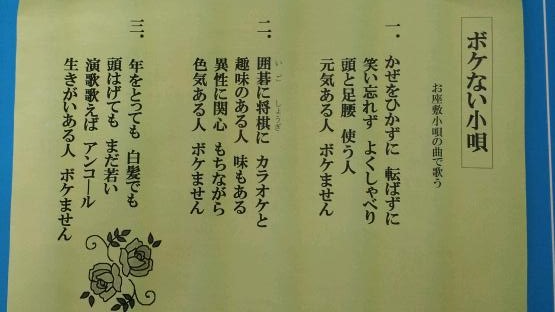 ボケない小唄
お座敷小唄の曲で歌う
一. かぜをひかずに 転ばずに
笑い忘れず よくしゃべり
頭と足腰 使う人
元気ある人 ボケません
二. 囲碁に将棋に カラオケと
いご しょうぎ
趣味のある人 味もある
異性に関心 もちながら
色気ある人 ボケません
三. 年をとっても 白髪でも
頭はげても まだ若い
演歌歌えば アンコール
生きがいある人 ボケません